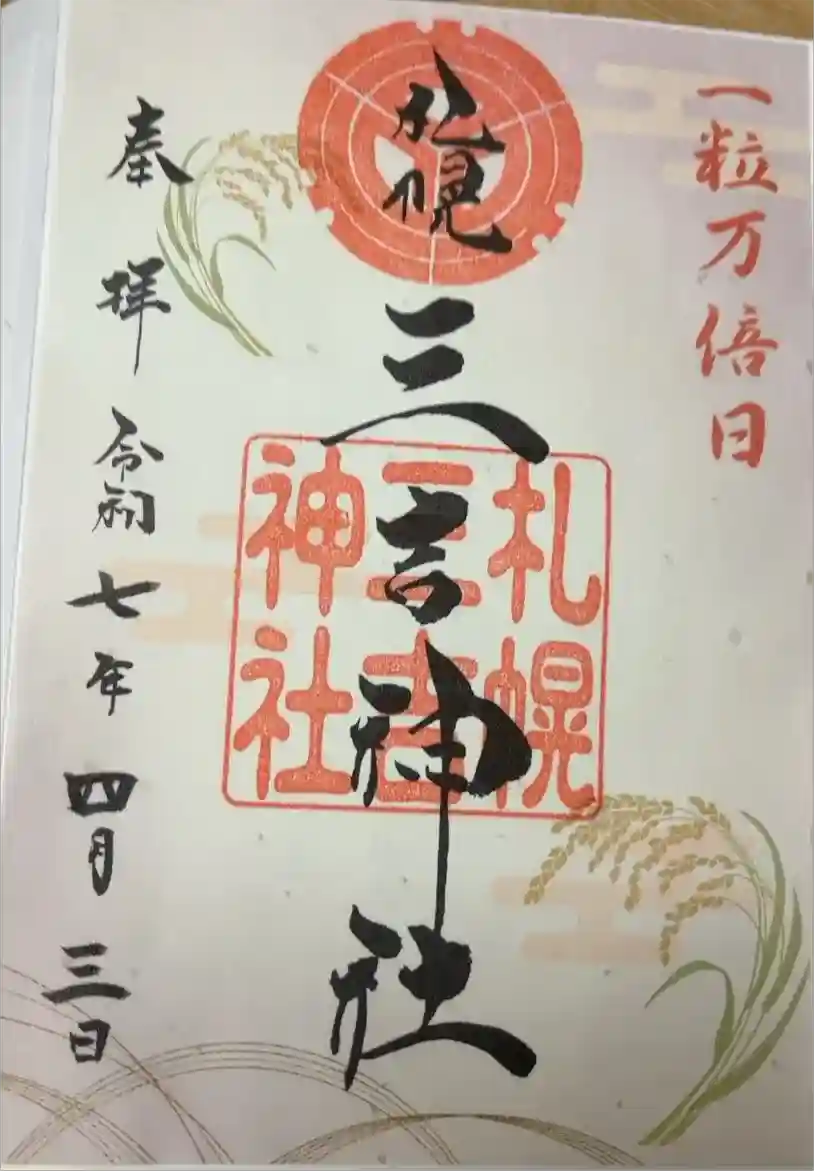 一粒万倍日
札幌三吉神社
札幌
三吉
神社
奉拝令和七年四月三日